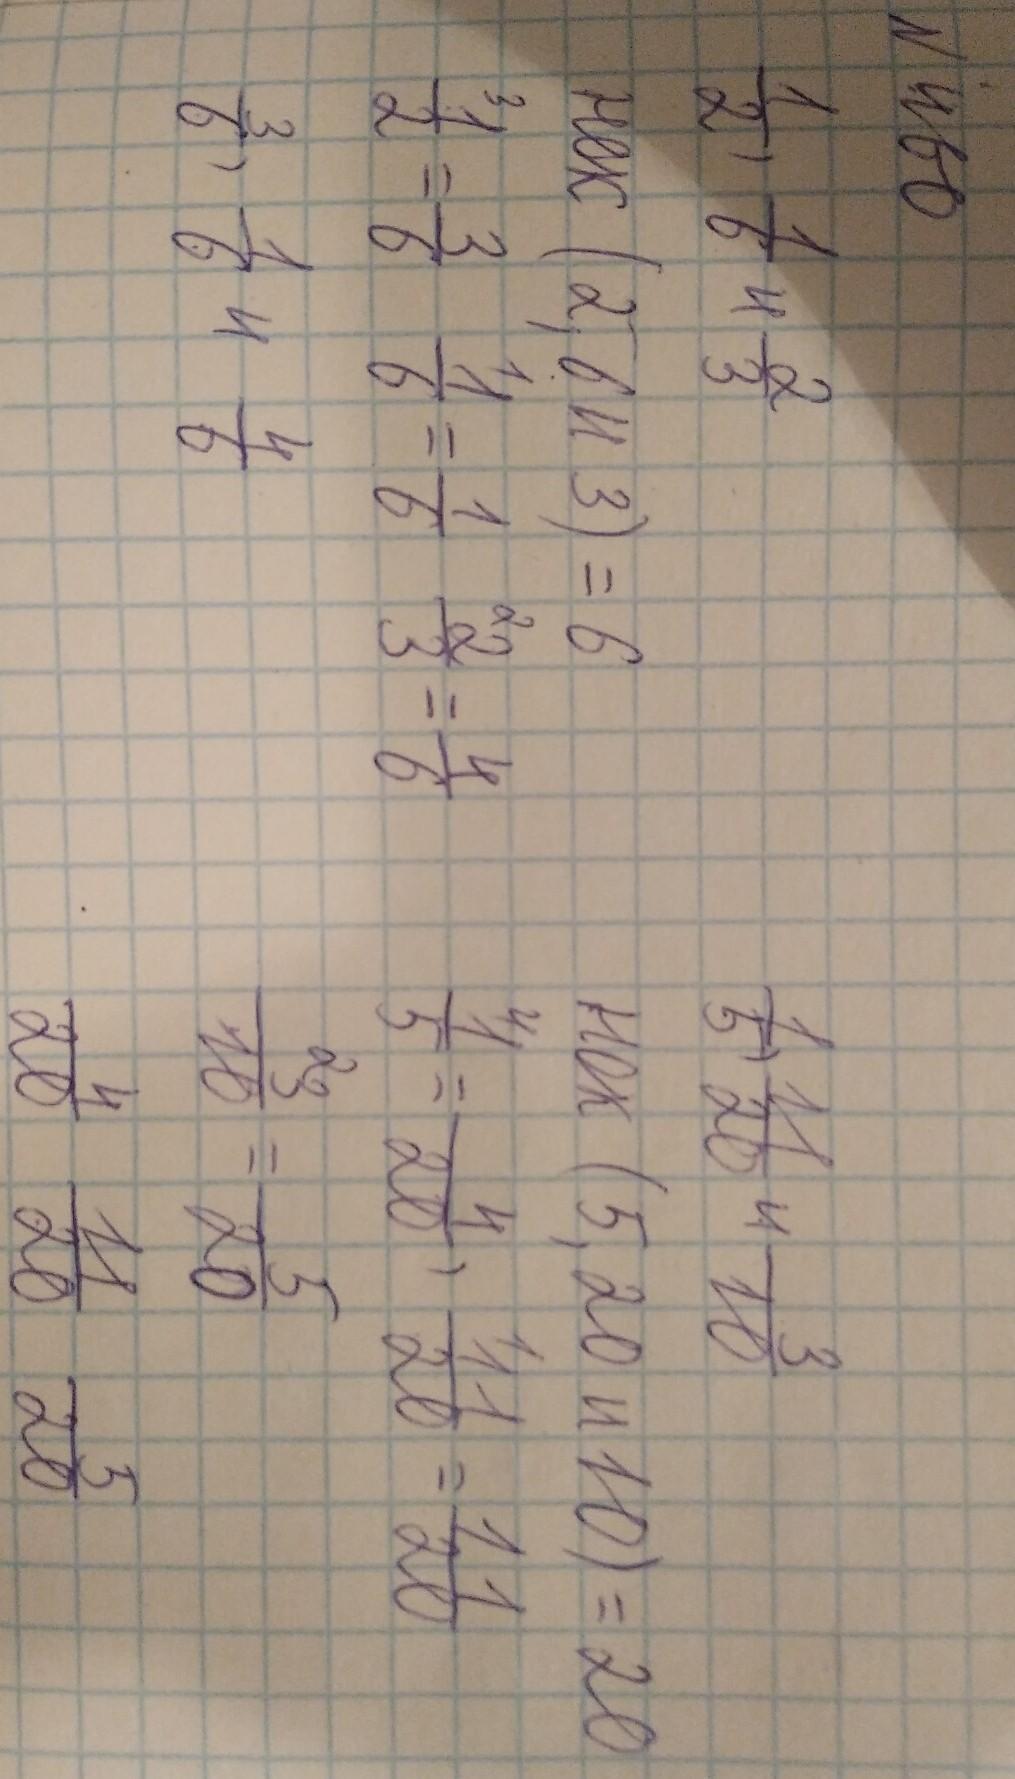 N 460
1/2, 1/6 и 2/3
НОК (2, 6 и 3) = 6
3 1/2 = 3/6 1/6 = 1/6 2 2/3 = 4/6
3/6, 1/6 и 4/6
1/5, 11/20 и 3/10
НОК (5, 20 и 10) = 20
4 1/5 = 4/20, 11/20 = 11/20
2 3/10 = 5/20
4/20 11/20 5/20